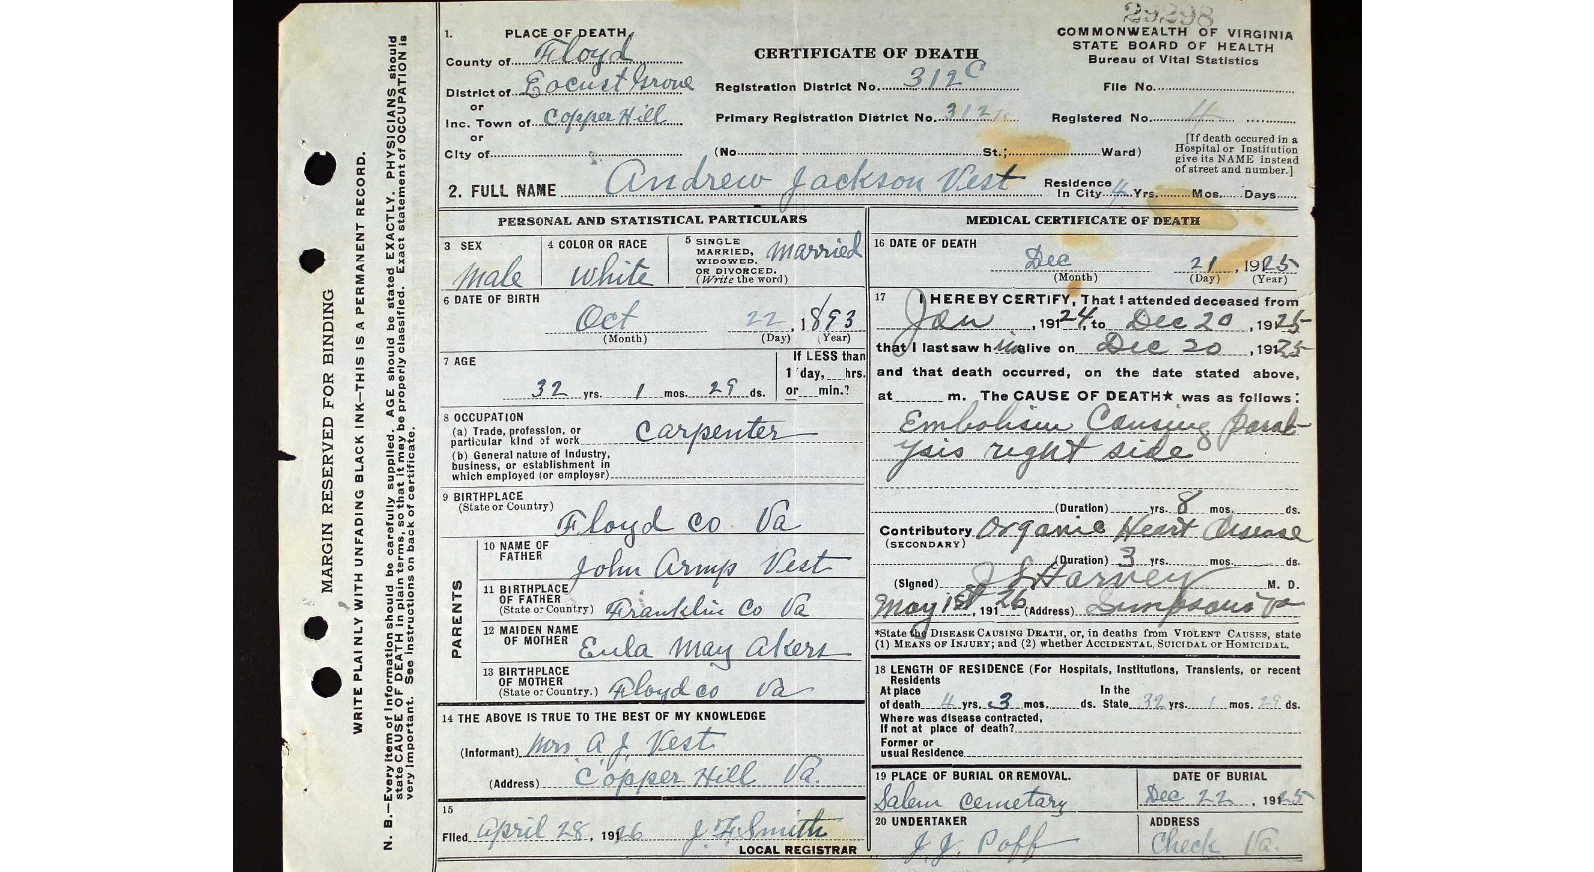 29298
COMMONWEALTH OF VIRGINIA
STATE BOARD OF HEALTH
Bureau of Vital Statistics
CERTIFICATE OF DEATH
1. PLACE OF DEATH
County of Floyd
District of Locust Grove
or
Inc. Town of Copper Hill
or
City of
Registration District No. 312C
Primary Registration District No. 312
(No. St.; Ward)
File No.
Registered No. 4
[If death occured in a
Hospital or Institution
give its NAME instead
of street and number.]
2. FULL NAME Andrew Jackson Vest
Residence
In City 4 Yrs. Mos. Days
PERSONAL AND STATISTICAL PARTICULARS
3 SEX
Male
4 COLOR OR RACE
White
5 SINGLE
MARRIED,
WIDOWED,
OR DIVORCED.
(Write the word)
Married
6 DATE OF BIRTH
Oct 22, 1893
(Month) (Day) (Year)
7 AGE
32 yrs. 1 mos. 29 ds.
If LESS than
1 day, hrs.
or min.?
8 OCCUPATION
(a) Trade, profession, or
particular kind of work Carpenter
(b) General nature of Industry,
business, or establishment in
which employed (or employer)
9 BIRTHPLACE
(State or Country)
Floyd Co Va
PARENTS
10 NAME OF
FATHER
John Armp Vest
11 BIRTHPLACE
OF FATHER
(State or Country) Franklin Co Va
12 MAIDEN NAME
OF MOTHER
Eula May Akers
13 BIRTHPLACE
OF MOTHER
(State or Country.) Floyd co Va
14 THE ABOVE IS TRUE TO THE BEST OF MY KNOWLEDGE
(Informant) Mrs A J Vest
(Address) Copper Hill Va.
15
Filed April 28, 1926 J F Smith
LOCAL REGISTRAR
MEDICAL CERTIFICATE OF DEATH
16 DATE OF DEATH
Dec 21, 1925
(Month) (Day) (Year)
17 I HEREBY CERTIFY, That I attended deceased from
Jan, 1924 to Dec 20, 1925
that I last saw him alive on Dec 20, 1925
and that death occurred, on the date stated above,
at m. The CAUSE OF DEATH★ was as follows:
Embolism Causing paral-
ysis right side
(Duration) yrs. 8 mos. ds.
Contributory Organic Heart Disease
(SECONDARY)
(Duration) 3 yrs. mos. ds.
(Signed) J S Harvey M. D.
May 1st, 1926 (Address) Simpsons Va
*State the DISEASE CAUSING DEATH, or, in deaths from VIOLENT CAUSES, state
(1) MEANS OF INJURY; and (2) whether ACCIDENTAL, SUICIDAL or HOMICIDAL.
18 LENGTH OF RESIDENCE (For Hospitals, Institutions, Transients, or recent
Residents
At place In the
of death 4 yrs. 3 mos. ds. State 32 yrs. 1 mos. 29 ds.
Where was disease contracted,
If not at place of death?
Former or
usual Residence
19 PLACE OF BURIAL OR REMOVAL.
Salem Cemetary
DATE OF BURIAL
Dec 22, 1925
20 UNDERTAKER
J. J. Poff
ADDRESS
Check Va.
MARGIN RESERVED FOR BINDING
WRITE PLAINLY WITH UNFADING BLACK INK—THIS IS A PERMANENT RECORD.
N. B.—Every item of information should be carefully supplied. AGE should be stated EXACTLY. PHYSICIANS should
state CAUSE OF DEATH in plain terms, so that it may be properly classified. Exact statement of OCCUPATION is
very important. See instructions on back of certificate.